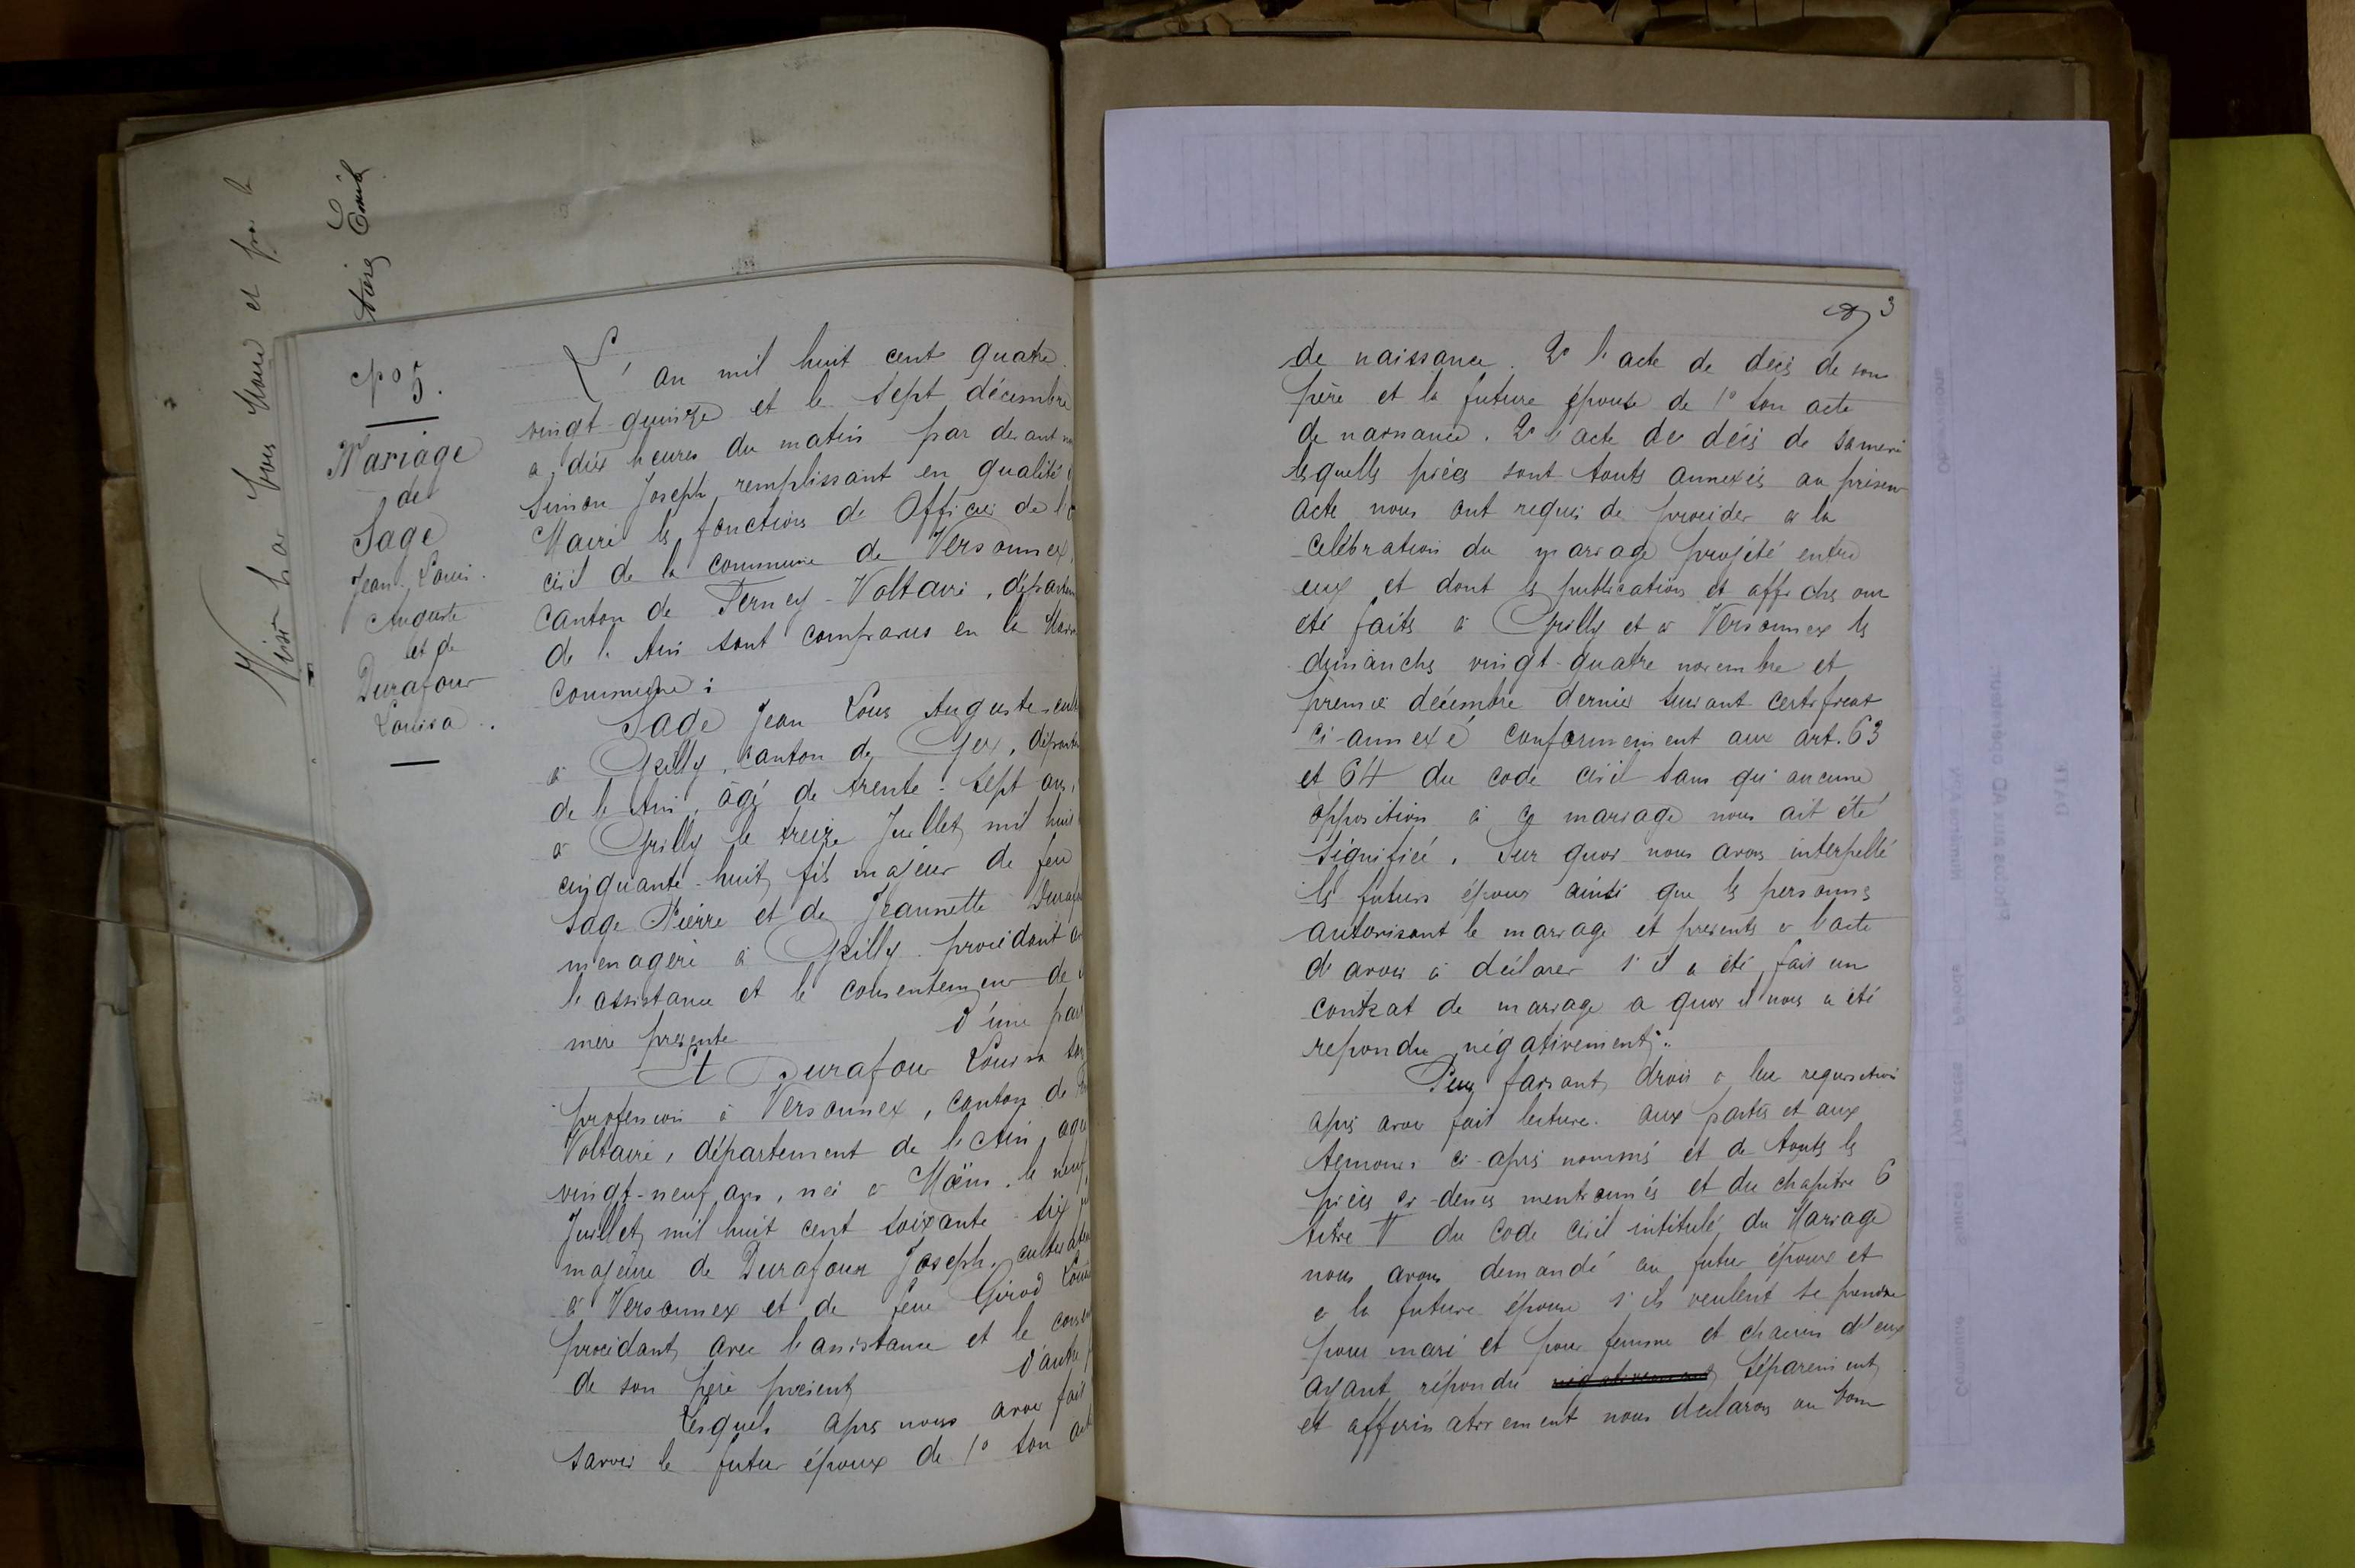 N° 5.
Mariage
de
Sage
Jean Louis
Auguste
et de
Durafour
Louisa.
L'an mil huit cent quatre
vingt-quinze et le sept décembre
à dix heures du matin par devant
Simon Joseph remplissant en qualité
Maire les fonctions de Officier de l'é
civil de la commune de Versonnex,
canton de Ferney-Voltaire, départem
de l'Ain sont comparus en la Mais
commune :
Sage Jean Louis Auguste cult
à Grilly, canton de Gex, départ
de l'Ain, âgé de trente-sept ans,
à Grilly le treize Juillet mil huit
cinquante-huit, fils majeur de feu
Sage Pierre et de Jeannette Duraf
menagère à Grilly procédant a
l'assistance et le consentement de
mère présente d'une par
Et Durafour Louisa san
profession à Versonnex, canton de
Voltaire, département de l'Ain, agée
vingt-neuf ans, née à Moëns, le neuf
Juillet mil huit cent soixante-six
majeure de Durafour Joseph, cultivateu
à Versonnex et de feue Girod Louis
procédant avec l'assistance et le conse
de son père présent d'autre
Lesquels après nous avoir fait
savoir le futur époux de 1° son act
3
de naissance. 2° l'acte de décès de son
père et la future épouse de 1° son acte
de naissance. 2° l'acte de décès de sa mère
lesquelles pièces sont toutes annexées au présent
acte nous ont requis de procéder à la
célébration du mariage projété entre
eux et dont les publications et affiches ont
été faites à Grilly et à Versonnex les
dimanches vingt-quatre novembre et
premier décembre dernier suivant certificat
ci-annexé conformément aux art. 63
et 64 du code civil sans qu'aucune
opposition à ce mariage nous ait été
signifiée. Sur quoi nous avons interpellé
les futurs époux ainsi que les personnes
autorisant le mariage et présents à l'acte
d'avoir à déclarer s'il a été fait un
contrat de mariage a quoi il nous a été
repondu négativement.
Puis faisant droit à leur requisition
après avoir fait lecture aux parties et aux
témoins ci-après nommés et de toutes les
pièces ci-dessus mentionnées et du chapitre 6
titre V du code civil intitulé du Mariage
nous avons demandé au futur époux et
à la future épouse s'ils veulent se prendre
pour mari et pour femme et chacun d'eux
ayant répondu négativement séparément
et affirmativement nous déclarons au nom